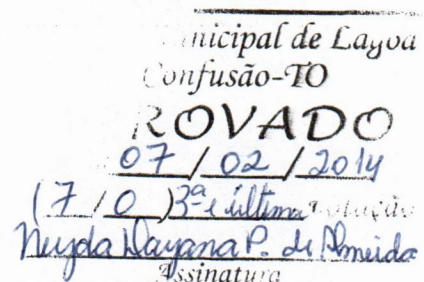 nicipal de Lagoa
Confusão-TO
ROVADO
07 / 02 / 2014
(7 / 0) 3ª e última votação
Neyda Dayana P. de Almeida
Assinatura